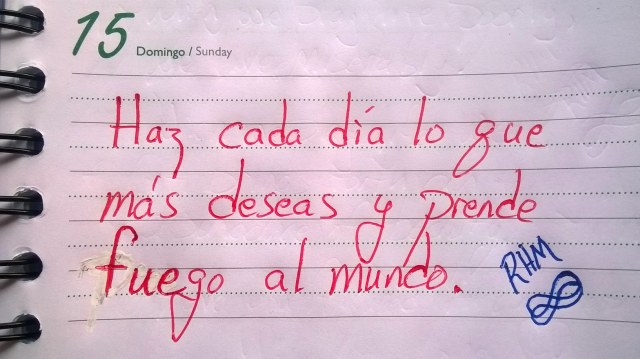 15 Domingo / Sunday
Haz cada día lo que
más deseas y prende
fuego al mundo.
RHM